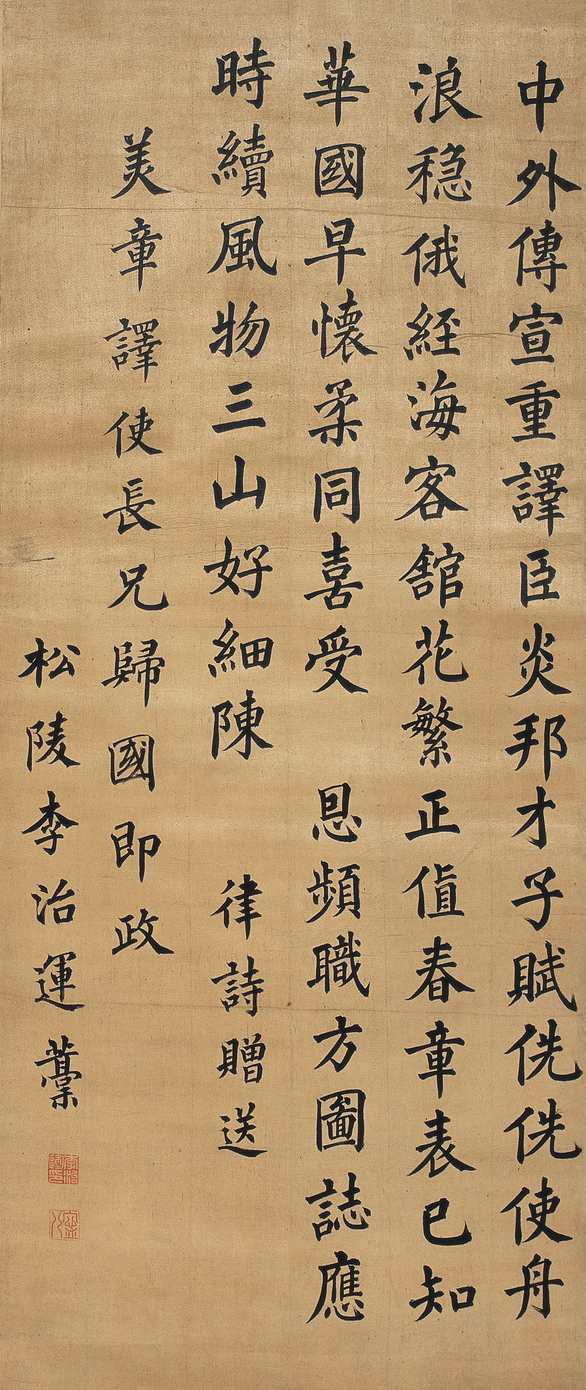 中外傳宣重譯臣炎邦才子賦侁侁使舟
浪穏俄經海客舘花繁正值春章表已知
華國早懷柔同喜受　恩頻職方圖誌應
時續風物三山好細陳　律詩贈送
美章譯使長兄歸國即政
松陵李治運藁